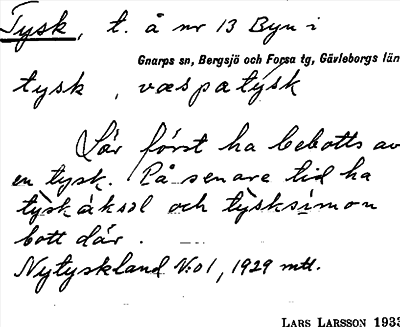 Tysk, t. å nr 13 Byn i
Gnarps sn, Bergsjö och Forsa tg, Gävleborgs län
tysk , væspatýsk
Lär först ha bebotts av
en tysk. På senare tid ha
týskàksəl och týsksìmon
bott där.
Nytyskland V:o1, 1929 mtl.
LARS LARSSON 1933